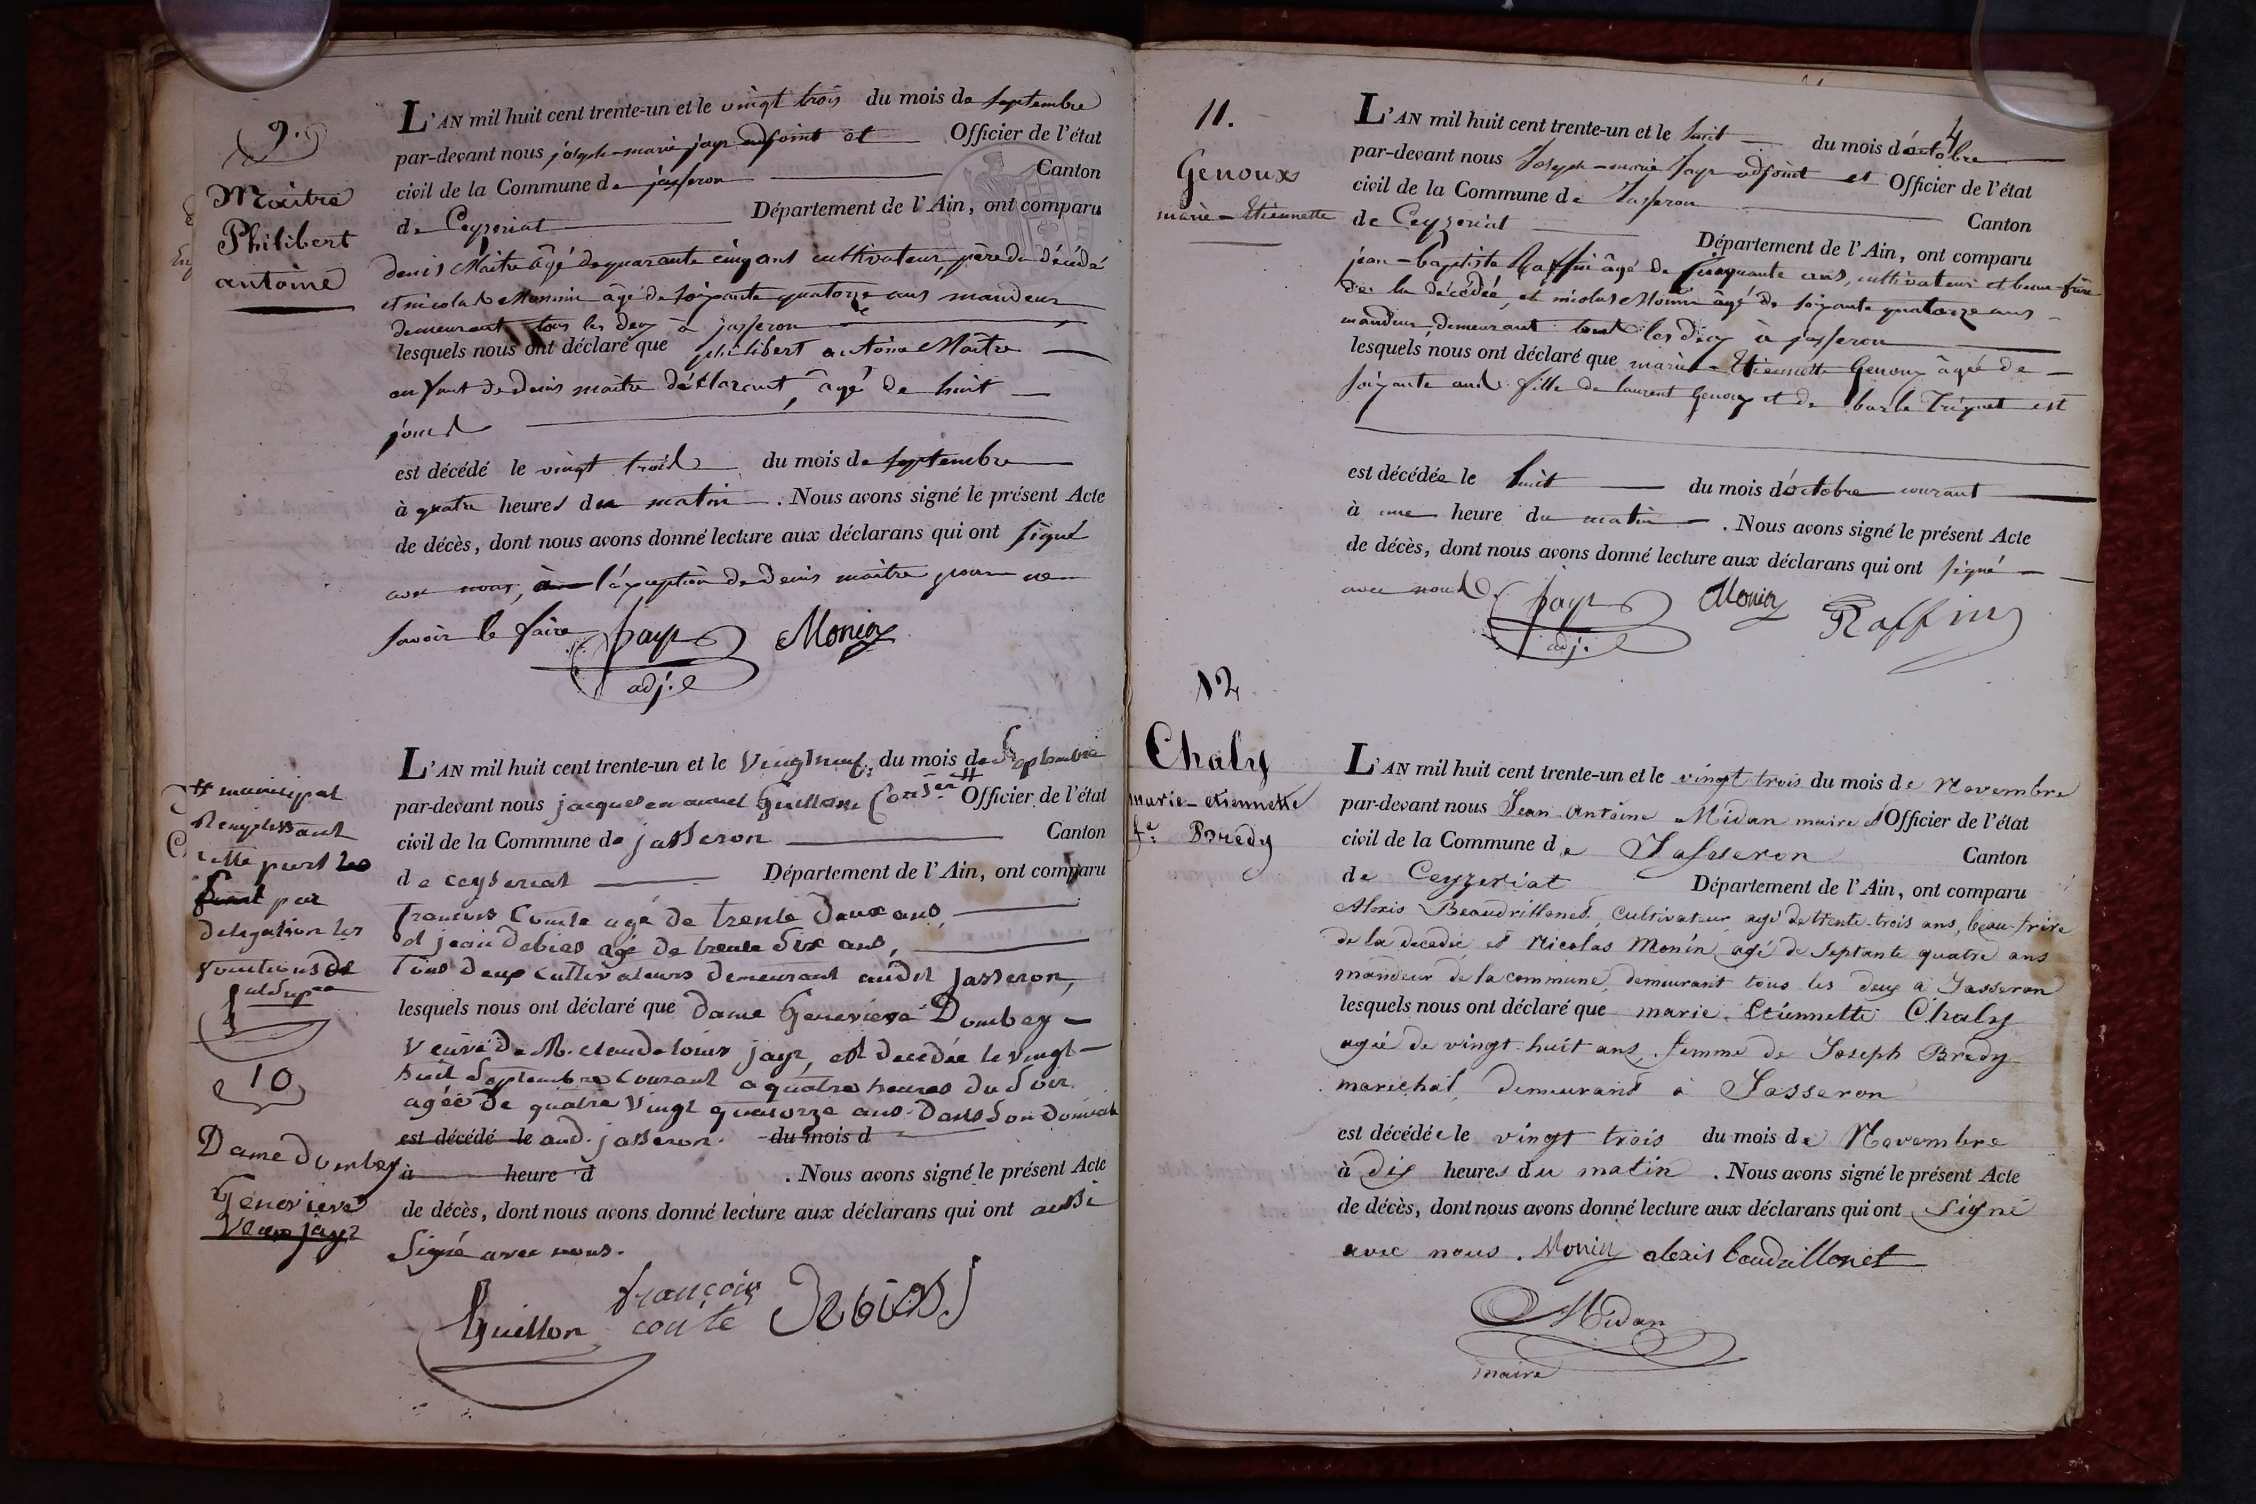 9.
Maitre
Philibert
antoine
L'AN mil huit cent trente-un et le vingt trois du mois de septembre
par-devant nous joseph-marie jayr adjoint et Officier de l'état
civil de la Commune de jasseron Canton
de Ceyzeriat Département de l'Ain, ont comparu
denis Maitre âgé de quarante cinq ans cultivateur, père du décédé
et nicolas Monnin âgé de soixante quatorze ans mandeur
demeurant tous les deux à jasseron
lesquels nous ont déclaré que philibert antoine Maitre
enfant de denis maitre déclarant, âgé de huit
jours
est décédé le vingt trois du mois de septembre
à quatre heures du matin. Nous avons signé le présent Acte
de décès, dont nous avons donné lecture aux déclarans qui ont signé
avec nous, à l'exception de denis maitre pour ne
savoir le faire Jayr Monin
adj.
L'AN mil huit cent trente-un et le Vingtneuf du mois de Septembre
par-devant nous jacques Guillon Conser # Officier de l'état
civil de la Commune de jasseron Canton
de ceyseriat Département de l'Ain, ont comparu
francois Comte agé de trente deux ans,
et jean debias agé de trente Six ans,
Tous deux cultivateurs demeurant audit Jasseron,
lesquels nous ont déclaré que dame Genevieve Dombey
Veuve de M. claude louis jayr, est decedée le vingt
huit Septembre Courant a quatre heures du Soir
agée de quatre Vingt quatorze ans dans Son domicile
est décédé le aud. jasseron. du mois d
à heure d . Nous avons signé le présent Acte
de décès, dont nous avons donné lecture aux déclarans qui ont aussi
Signé avec nous.
Guillon françois comte Debias
# municipal
Remplissant
par
delegation les
fonctions
10
Dame Dombey
Genevieve
Veuve jayr
11.
Genoux
marie-Etiennette
L'AN mil huit cent trente-un et le huit du mois d'octobre
par-devant nous Joseph-marie Jayr adjoint et Officier de l'état
civil de la Commune de Jasseron Canton
de Ceyzeriat Département de l'Ain, ont comparu
jean-baptiste Raffin âgé de Cinquante ans, cultivateur et beau-frère
de la décédée, et nicolas Monin âgé de soixante quatorze ans
mandeur demeurant tous les deux à jasseron
lesquels nous ont déclaré que marie-Etiennette Genoux âgée de
soixante ans fille de laurent Genoux et de barbe Triquet est
est décédée le huit du mois d'octobre courant
à une heure du matin. Nous avons signé le présent Acte
de décès, dont nous avons donné lecture aux déclarans qui ont signé
avec nous. Jayr Monin Raffin
adj.
12
Chaly
marie-etiennette
fe Brédy
L'AN mil huit cent trente-un et le vingt trois du mois de Novembre
par-devant nous Jean Antoine Midan maire & Officier de l'état
civil de la Commune de Jasseron Canton
de Ceyzeriat Département de l'Ain, ont comparu
Alexis Beaudrillonet, Cultivateur, agé de trente-trois ans, beau-frire
de la decedée et Nicolas Monin agé de Septante quatre ans
mandeur de la commune, demeurant tous les deux à Jasseron
lesquels nous ont déclaré que marie. Etiennette Chaly
agée de vingt-huit ans, femme de Joseph Bredy
marichal, demeurant à Jasseron
est décédée le vingt trois du mois de Novembre
à dix heures du matin. Nous avons signé le présent Acte
de décès, dont nous avons donné lecture aux déclarans qui ont Signé
avec nous. Monin alexis baudrillonet
Midan
maire